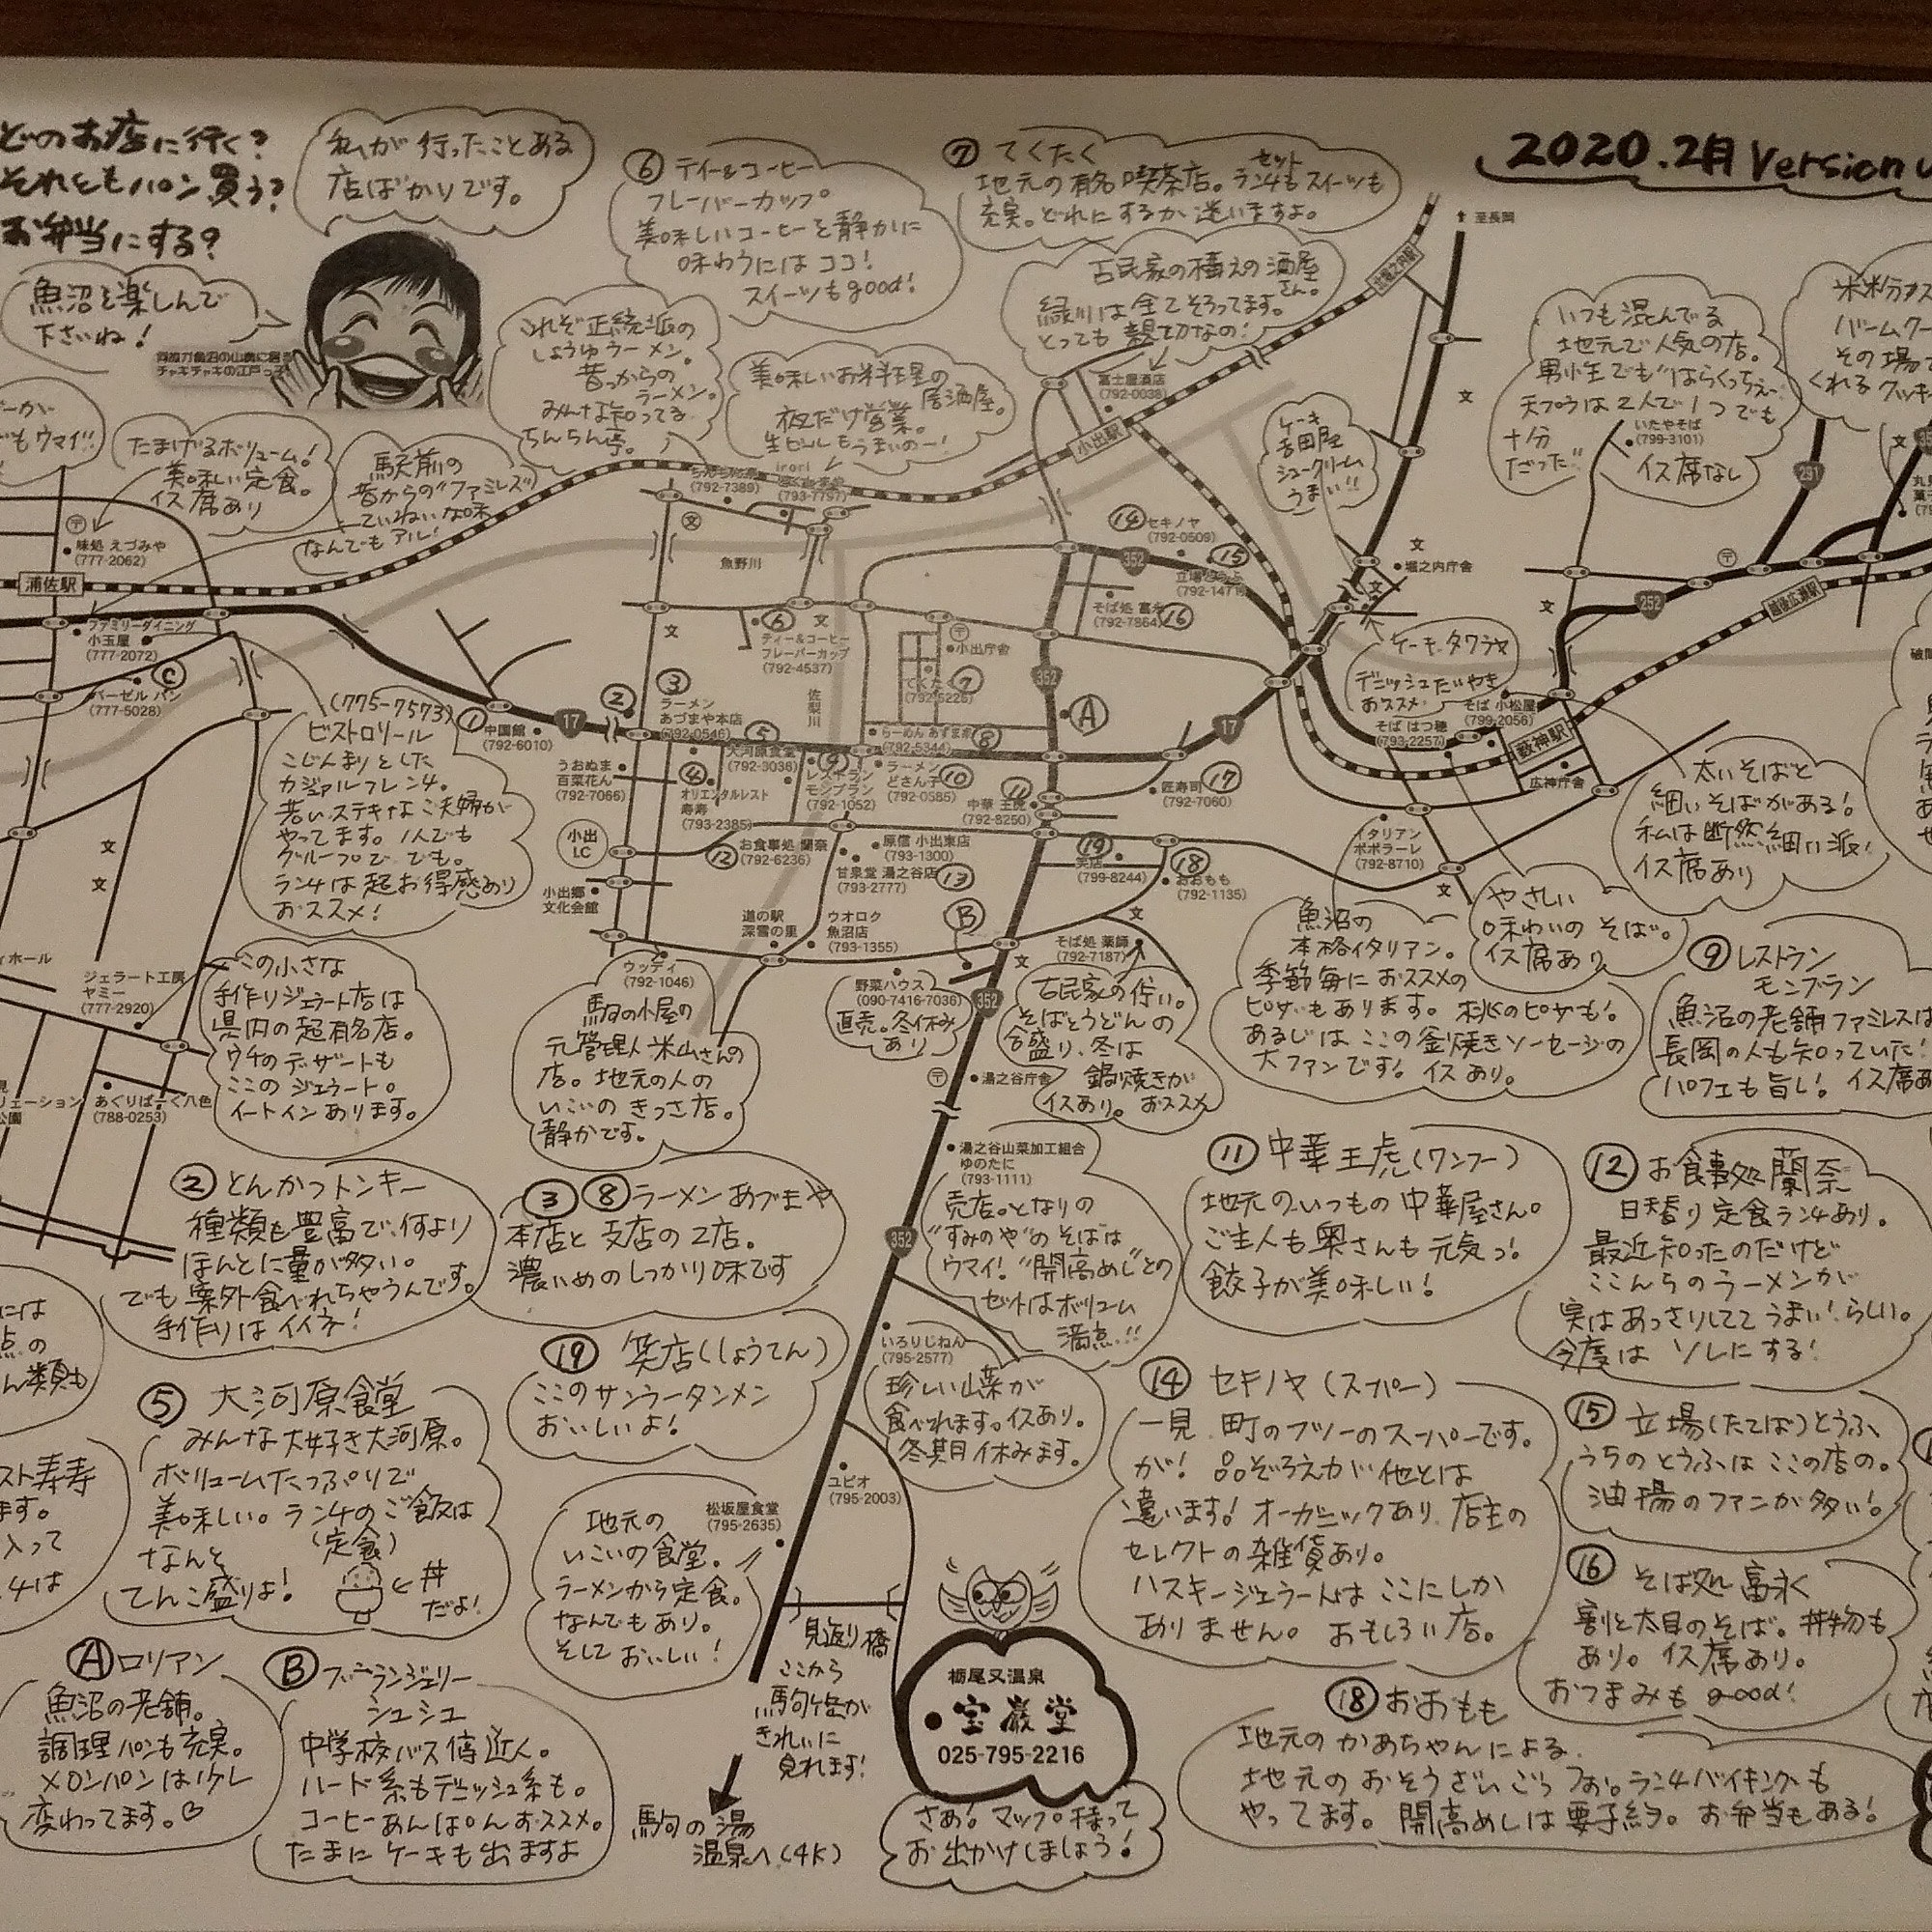 どのお店に行く?
それともパン買う?
お弁当にする?
私が行ったことある
店ばかりです。
魚沼を楽しんで
下さいね!
チャキチャキの江戸っ子
⑥ ティー&コーヒー
フレーバーカップ
美味しいコーヒーを静かに
味わうにはココ!
スイーツもgood!
⑦ てくたく
地元の有名喫茶店。ランチもスイーツも
セット
充実。どれにするか迷いますよ。
2020.2月 Version
至長岡
古民家の構えの酒屋
さん。
緑川は全てそろってます。
とっても親切なの!
富士屋酒店
(792-0038)
これぞ正統派の
しょうゆラーメン。
昔っからの
ラーメン。
みんな知ってる
ちんちん亭。
(792-7389)
美味しいお料理の
居酒屋。
夜だけ営業。
生ビールもうまいのー!
irori
(793-7797)
いつも混んでる
地元で人気の店。
男小生でも"はらくっちぇ~
天プラは2人で1つでも
十分
だった"
いたやそば
(799-3101)
イス席なし
ケーキ
吉田屋
シュークリーム
うまい!!
たまげるボリューム!
美味しい定食。
イス席あり
駅前の
昔からの"ファミレス"
ていねいな味
なんでもアル!
味処 えづみや
(777-2062)
浦佐駅
小出駅
ファミリーダイニング
小玉屋
(777-2072)
Ⓒ
バーゼル パン
(777-5028)
魚野川
佐梨川
⑥
ティー&コーヒー
フレーバーカップ
(792-4537)
小出庁舎
⑦
⑭ セキノヤ
(792-0509)
⑮
そば処 富永
(792-7864)
⑯
堀之内庁舎
352
17
252
291
ケーキ タワラヤ
デニッシュたいやき
おススメ
そば 小松屋
(799-2056)
そば はつ穂
(793-2257)
藪神駅
越後広瀬駅
広神庁舎
(775-7573)
ビストロリール
こじんまりとした
カジュアルフレンチ。
若いステキなご夫婦が
やってます。1人でも
グループで でも。
ランチは超お得感あり
おススメ!
① 中国館
(792-6010)
②
③
ラーメン
あづまや本店
(792-0546)
⑤
大河原食堂
(792-3036)
うおぬま
百菜花ん
(792-7066)
④
オリエンタルレスト
寿寿
(793-2385)
⑨
レストラン
モンブラン
(792-1052)
⑧
(792-5344)
ラーメン
どさん子
(792-0585)
⑩
⑪
中華 王虎
(792-8250)
Ⓐ
匠寿司
(792-7060)
⑰
小出
I.C
⑫
お食事処 蘭奈
(792-6236)
原信 小出東店
(793-1300)
甘泉堂 湯之谷店
(793-2777)
⑬
⑲
笑店
(799-8244)
⑱
おおもも
(792-1135)
イタリアン
ポポラーレ
(792-8710)
小出郷
文化会館
道の駅
深雪の里
ウオロク
魚沼店
(793-1355)
Ⓑ
そば処 薬師
(792-7187)
太いそばと
細いそばがある!
私は断然細い派!
イス席あり
やさしい
味わいの そば。
イス席あり
ジェラート工房
ヤミー
(777-2920)
この小さな
手作りジェラート店は
県内の超有名店。
ウチのデザートも
ここの ジェラート。
イートインあります。
あぐりぱーく八色
(788-0253)
ウッディ
(792-1046)
駒の小屋の
元管理人米山さんの
店。地元の人の
いこいの きっさ店。
静かです。
野菜ハウス
(090-7416-7036)
直売。冬休み
あり
古民家の佇い。
そばとうどんの
合盛り、冬は
鍋焼きが
イスあり。おススメ
湯之谷庁舎
魚沼の
本格イタリアン。
季節毎に おススメの
ピザもあります。桃のピザも!
あるじは ここの釜焼きソーセージの
大ファンです! イスあり。
⑨ レストラン
モンブラン
魚沼の老舗ファミレスは
長岡の人も知っていた!
パフェも旨し! イス席あ
湯之谷山菜加工組合
ゆのたに
(793-1111)
売店。となりの
"すみのや"の そばは
ウマイ!"開高めし"との
セットはボリューム
満点!!
② とんかつトンキー
種類も豊富で、何より
ほんとに量が多い。
でも案外食べれちゃうんです。
手作りはイイネ!
③ ⑧ ラーメン あづまや
本店と支店の2店。
濃いめのしっかり味です
⑪ 中華 王虎(ワンフー)
地元のいつもの中華屋さん。
ご主人も奥さんも元気っ!
餃子が美味しい!
⑫ お食事処 蘭奈
日替り定食ランチあり。
最近知ったのだけど
ここんちのラーメンが
実はあっさりしてて うまい!らしい。
今度は ソレにする!
⑲ 笑店(しょうてん)
ここのサンラータンメン
おいしいよ!
いろりじねん
(795-2577)
珍しい山菜が
食べれます。イスあり。
冬期休みます。
⑤ 大河原食堂
みんな大好き大河原。
ボリュームたっぷりで
美味しい。ランチのご飯は
(定食)
なんと
てんこ盛りよ!
丼
だよ!
⑭ セキノヤ(スーパー)
一見 町のフツーのスーパーです。
が! 品ぞろえが他とは
違います! オーガニックあり 店主の
セレクトの雑貨あり。
ハスキージェラートは ここにしか
ありません。 おもしろい店。
⑮ 立場(たてば)とうふ
うちの とうふは ここの店の。
油揚のファンが多い!
⑯ そば処 富永
割と太目のそば。丼物も
あり。イス席あり。
おつまみも good!
ユピオ
(795-2003)
松坂屋食堂
(795-2635)
地元の
いこいの食堂。
ラーメンから定食。
なんでもあり。
そして おいしい!
見返り橋
ここから
駒ケ岳が
きれいに
見れます!
駒の湯
温泉へ(4K)
栃尾又温泉
宝巌堂
025-795-2216
さあ! マップ持って
お出かけしましょう!
Ⓐ ロリアン
魚沼の老舗。
調理パンも充実。
メロンパンは少し
変わってます。♡
Ⓑ ブーランジェリー
シュシュ
中学校バス停近く。
ハード系もデニッシュ系も。
コーヒーあんぱんおススメ。
たまに ケーキも出ますよ
⑱ おおもも
地元のかあちゃんによる
地元の おそうざい ごっつお! ランチバイキングも
やってます。 開高めしは要予約。 お弁当もある!